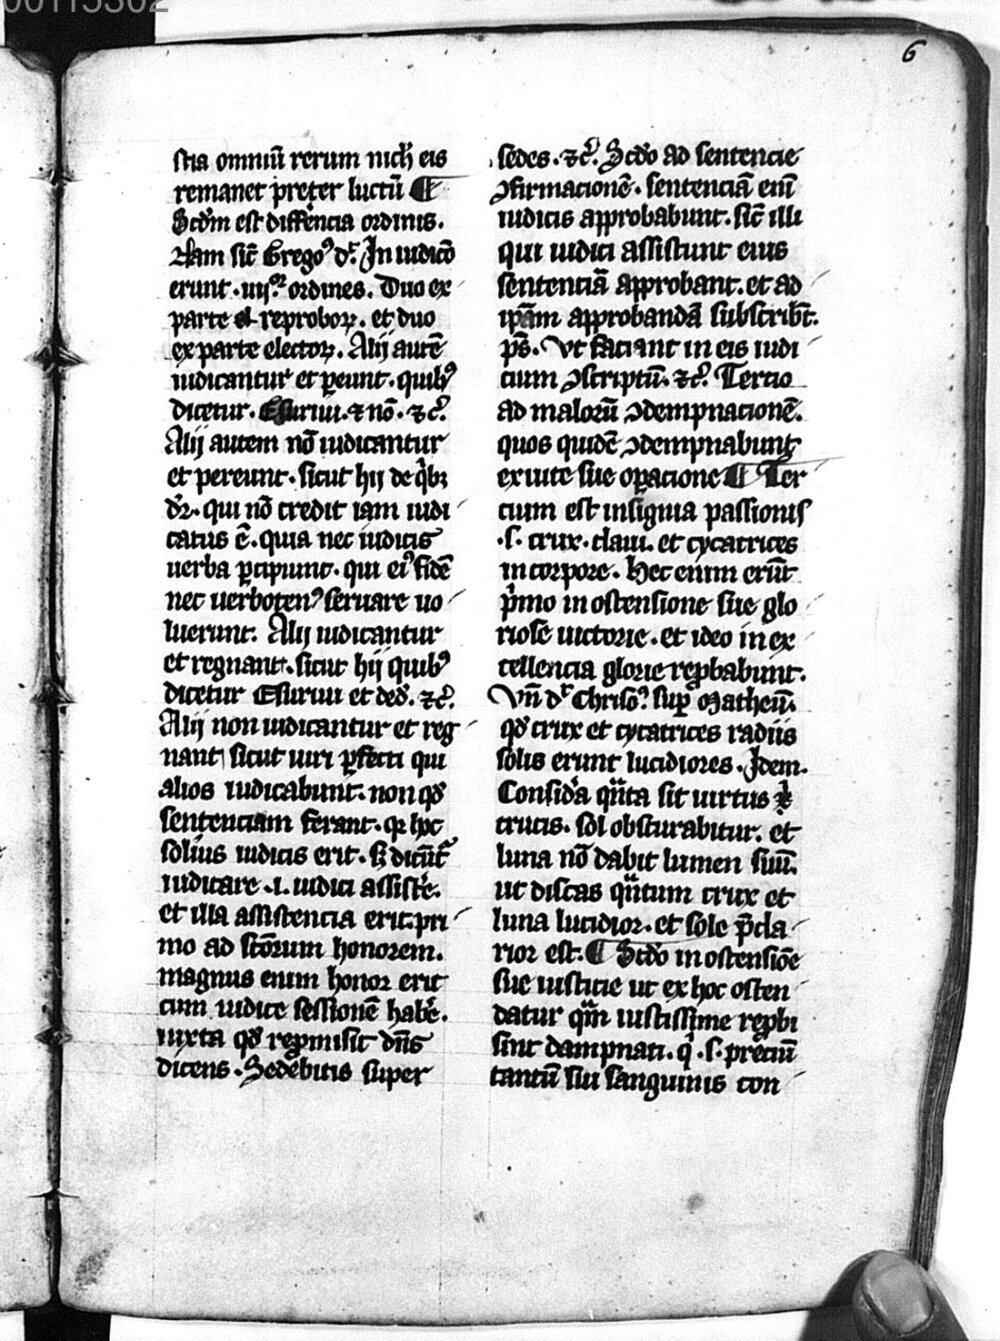 00115302
6
stia omniū rerum nich̄ eis
remanet preter luctū ¶
Scd̓m est diffēncia ordinis.
Nam sic̄ Grego᷒ dr̄. In iudico̅
erunt .iiij.ᵒʳ ordines. Duo ex
parte reproboꝝ. et duo
ex parte electoꝝ. Alij autē
iudicantur et ꝑeunt. quib᷒
dicetur. Esuriui. ⁊ nō. ⁊c̄.
Alij autem nō iudicantur
et pereunt. sicut hij de qͥbꝫ
dr̄. qui nō credit iam iudi
catus ē. quia nec iudicis
uerba ꝑcipiunt. qui ei᷒ fidē
nec uerboten᷒ seruare uo
luerunt. Alij iudicantur
et regnant. sicut hij quib᷒
dicetur Esuriui et ded̓. ⁊c̄.
Alij non iudicantur et reg
nant sicut uiri ꝑfecti qui
alios iudicabunt. non qd̓
sentenciam ferant. qꝛ hoc
solius iudicis erit. sꝫ dicūt̄
iudicare .i. iudici assiste̅.
et illa assistencia erit. pri
mo ad sc̄orum honorem.
magnus enim honor erit
cum iudice sessionē habe̅.
iuxta qd̓ repmisit dn̄s
dicens. Sedebitis super
sedes. ⁊c̄. Scd̓o ad sentencie
ꝯfirmacionē. sentenciā enī
iudicis approbabunt. sic̄ illi
qui iudici assistunt eius
sentenciā approbant. et ad
ip̄am approbandā subscribt̄.
pˢ. Vt faciant in eis iudi
cium ꝯscriptū. ⁊c̄. Tercio
ad maloru̅ ꝯdempnacionē.
quos quidē ꝯdempnabunt
ex uite sue oꝑacione ¶ Ter
cium est insignia passionis
.s. crux. claui. et cycatrices
in corpore. Hec enim erūt
pͥmo in ostensione sue glo
riose uictorie. et ideo in ex
cellencia glorie rep̄babunt.
Vn̄ dr̄ Chriso᷒. suꝑ Matheū.
qd̓ crux et cycatrices radiis
solis erunt lucidiores. Idem.
Consid̓a qn̄ta sit uirtus
crucis. sol obscurabitur. et
luna nō dabit lumen suū.
ut discas qn̄tum crux et
luna lucidior. et sole p̄cla
rior est. ¶ Scd̓o in ostensiōe
sue iusticie ut ex hoc osten
datur qm̄ iustissime rep̄bi
sint dampnati. qͥ .s. preciū
tantū sui sanguinis con